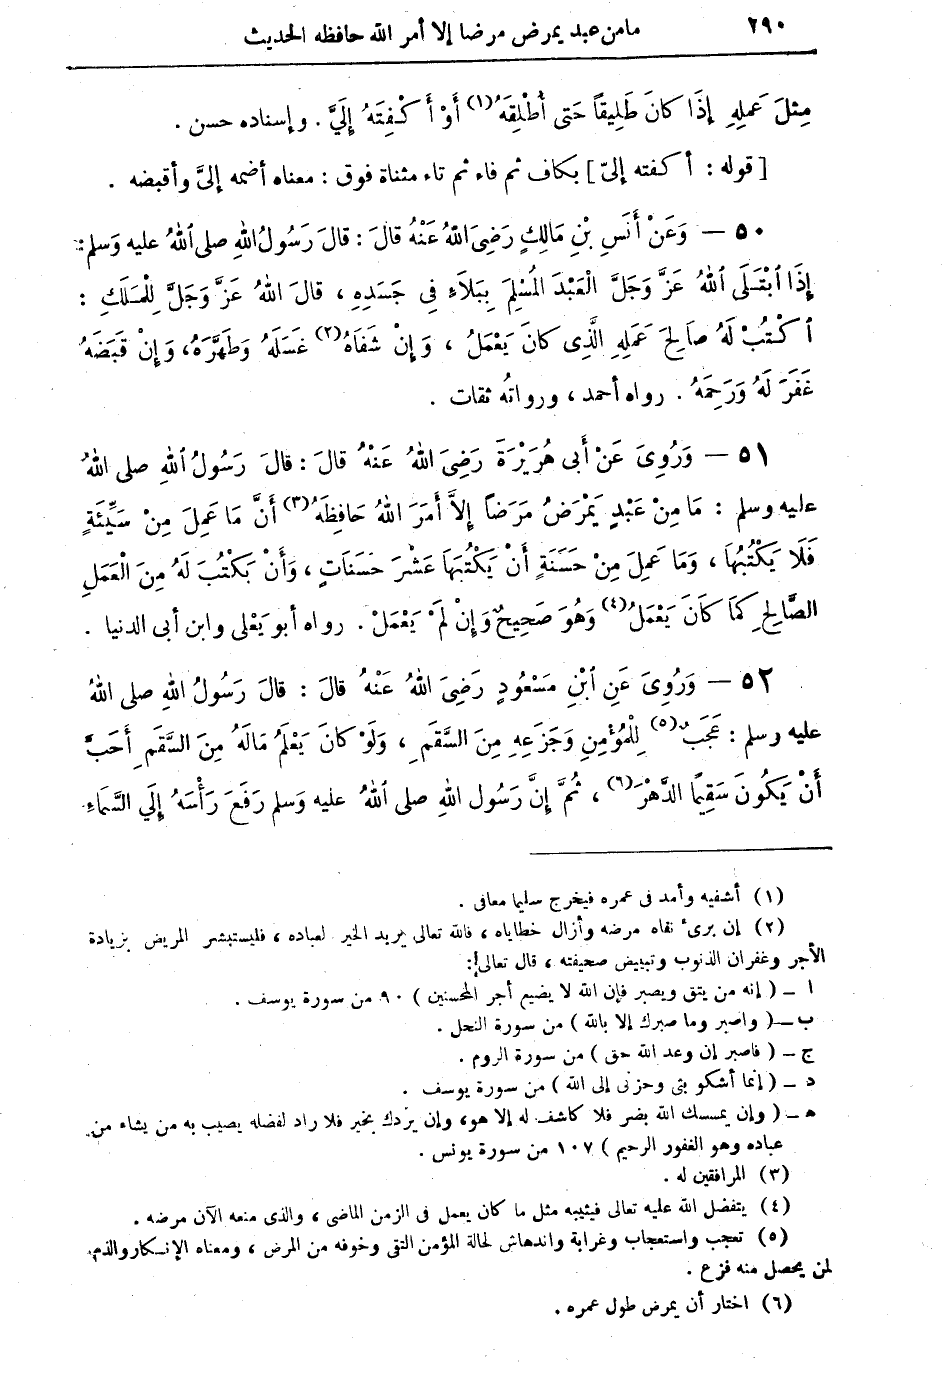 ٢٩٠ مامن عبد يمرض مرضا إلا أمر الله حافظه الحديث
مِثلَ عَملِهِ إِذَا كانَ طَلِيقاً حَتى أُطْلِقَهُ (١) أَوْ أَكْفِتَهُ إِلَىَّ . وإسناده حسن .
[ قوله : أكفته إلىّ ] بكاف ثم فاء ثم تاء مثناة فوق : معناه أضمه إلىَّ وأقبضه .
٥٠ — وَعَنْ أَنَسِ بْنِ مَالِكٍ رَضِىَ اللهُ عَنْهُ قالَ : قالَ رَسُولُ اللهِ صلى اللهُ عليه وَسلم :
إِذَا ابْتَلَى اللهُ عَزَّ وَجَلَّ الْعَبْدَ الْمُسْلِمَ بِبَلَاءٍ فِى جَسَدِهِ ، قالَ اللهُ عَزَّ وَجَلَّ لِلْمَلَكِ :
اكْتُبْ لَهُ صَالِحَ عَمَلِهِ الَّذِى كانَ يَعْمَلُ ، وَإِنْ شَفَاهُ (٢) غَسَلَهُ وَطَهَّرَهُ، وَإِنْ قَبَضَهُ
غَفَرَ لَهُ وَرَحِمَهُ . رواه أحمد ، ورواتُه ثقات .
٥١ — وَرُوِىَ عَنْ أَبى هُرَيْرَةَ رَضِىَ اللهُ عَنْهُ قالَ : قالَ رَسُولُ اللهِ صلى اللهُ
عليه وسلم : مَا مِنْ عَبْدٍ يَمْرَضُ مَرَضاً إِلاَّ أَمَرَ اللهُ حَافِظَهُ (٣) أَنَّ مَا عَمِلَ مِنْ سَيِّئَةٍ
فَلَا يَكْتُبُهَا ، وَمَا عَمِلَ مِنْ حَسَنَةٍ أَنْ يَكْتُبَهَا عَشْرَ حَسَنَاتٍ ، وَأَنْ يَكْتُبَ لَهُ مِنَ الْعَمَلِ
الصَّالِحِ كمَا كَانَ يَعْمَلُ (٤) وَهُوَ صَحِيحٌ وَإِنْ لَمْ يَعْمَلْ . رواه أبو يَعْلى وابن أبى الدنيا .
٥٢ — وَرُوِىَ عَنِ ابْنِ مَسْعُودٍ رَضِىَ اللهُ عَنْهُ قالَ : قالَ رَسُولُ اللهِ صلى اللهُ
عليه وسلم : عَجَبٌ (٥) لِلْمُؤْمِنِ وَجَزَعِهِ مِنَ السَّقَمِ ، وَلَوْ كانَ يَعْلَمُ مَالَهُ مِنَ السَّقَمِ أَحَبَّ
أَنْ يَكُونَ سَقِيماً الدَّهْرَ (٦) ، ثُمَّ إِنَّ رَسُول اللهِ صلى اللهُ عليه وسلم رَفَعَ رَأْسَهُ إِلَي السَّمَاءِ
(١) أشفيه وأمد فى عمره فيخرج سليما معافى .
(٢) إن برئ نقاه مرضه وأزال خطاياه ، فالله تعالى يريد الخير لعباده ، فليستبشر المريض بزيادة
الأجر وغفران الذنوب وتبييض صحيفته ، قال تعالى :
ا — ( إنه من يتق ويصبر فإن الله لا يضيع أجر المحسنين ) ٩٠ من سورة يوسف .
ب — ( واصبر وما صبرك إلا بالله ) من سورة النحل .
ج — ( فاصبر إن وعد الله حق ) من سورة الروم .
د — ( إنما أشكو بثى وحزنى إلى الله ) من سورة يوسف .
ه — ( وإن يمسسك الله بضر فلا كاشف له إلا هو، وإن يردك بخير فلا راد لفضله يصيب به من يشاء من
عباده وهو الغفور الرحيم ) ١٠٧ من سورة يونس .
(٣) المرافقين له .
(٤) يتفضل الله عليه تعالى فيثيبه مثل ما كان يعمل فى الزمن الماضى ، والذى منعه الآن مرضه .
(٥) تعجب واستعجاب وغرابة واندهاش لحالة المؤمن التقى وخوفه من المرض ، ومعناه الإنكار والذم
لمن يحصل منه فزع .
(٦) اختار أن يمرض طول عمره .